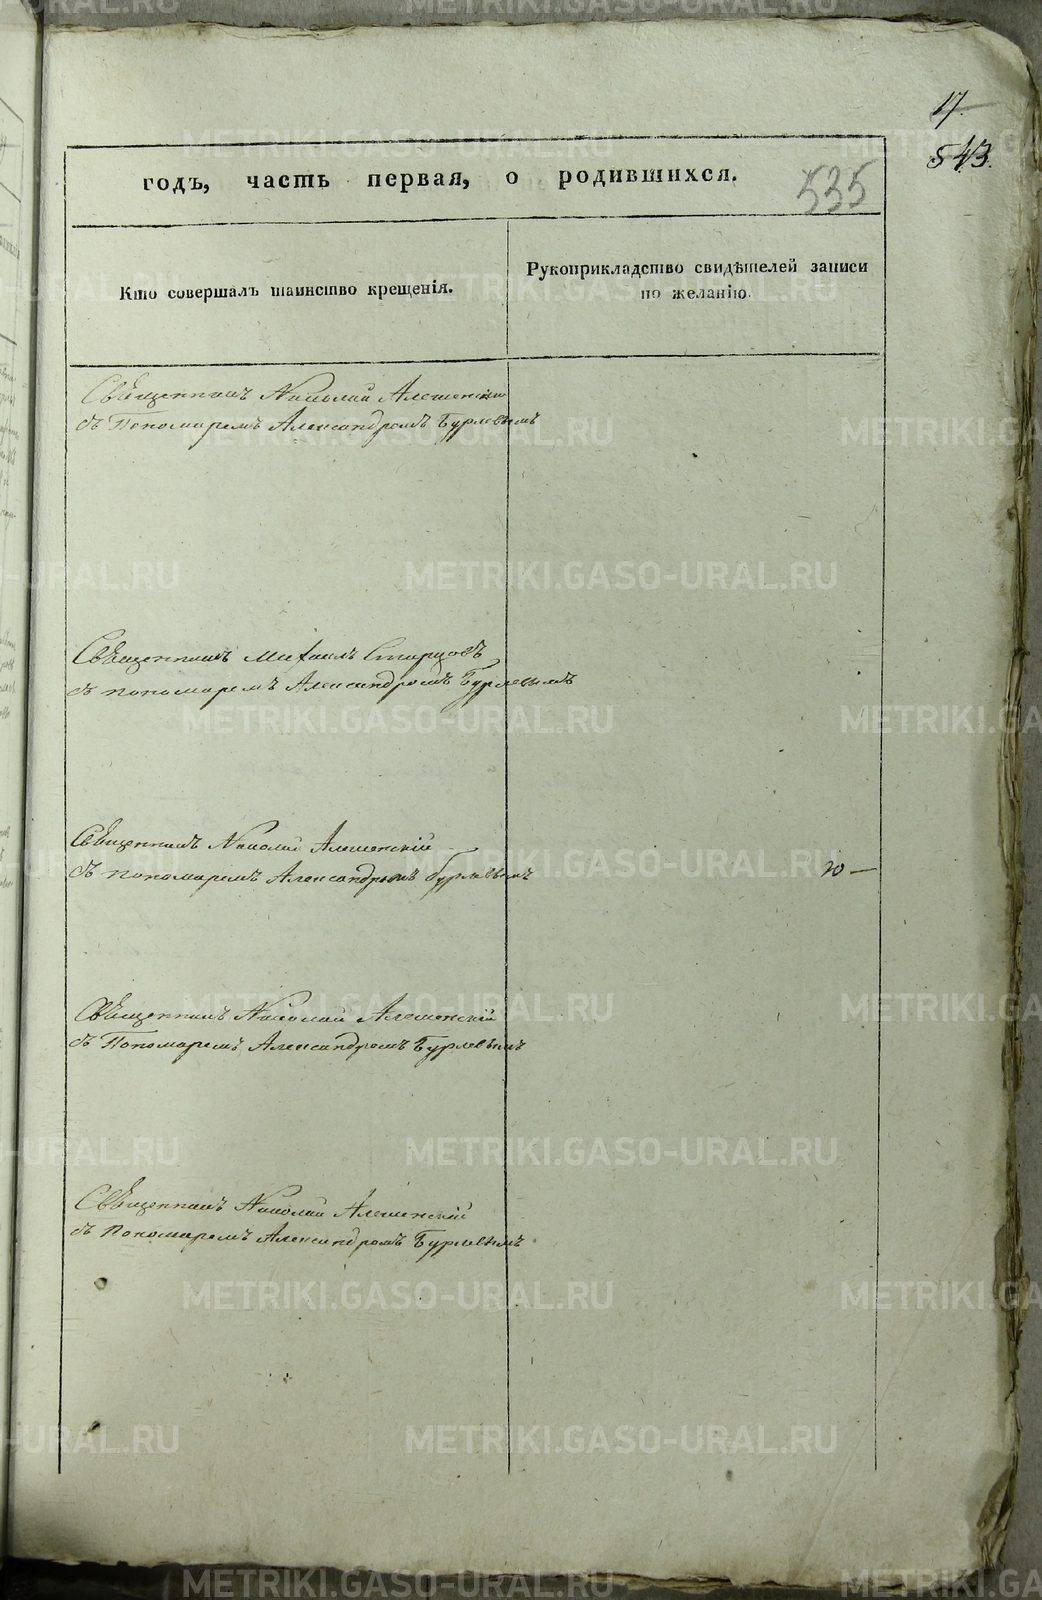 17.
543.
годъ, часть первая, о родившихся.
535
Кто совершалъ таинство крещенія.
Рукоприкладство свидѣтелей записи
по желанію.
Священникъ Николай Алешенскій
съ Пономаремъ Александромъ Бурлевымъ
Священникъ Михаилъ Старцовъ
съ пономаремъ Александромъ Бурлевымъ
Священникъ Николай Алешенскій
съ пономаремъ Александромъ Бурлевымъ
Священникъ Николай Алешенскій
съ Пономаремъ Александромъ Бурлевымъ
Священникъ Николай Алешенскій
съ Пономаремъ Александромъ Бурлевымъ
METRIKI.GASO-URAL.RU